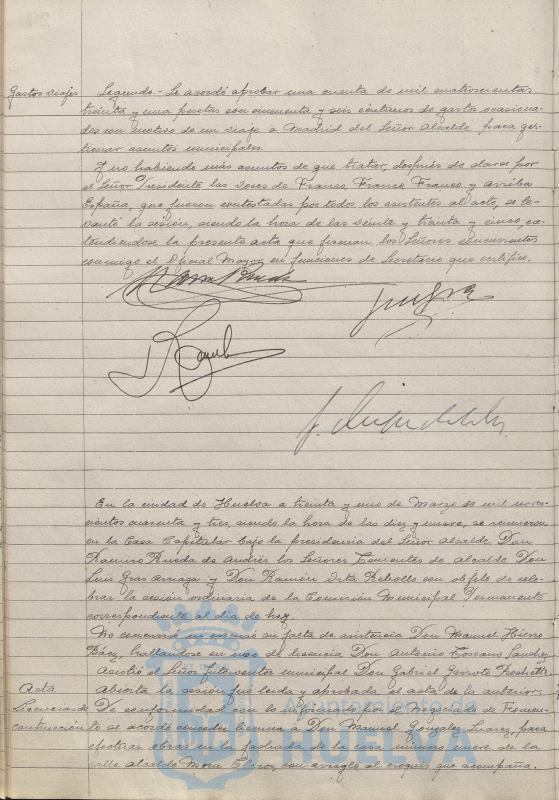 Gastos viajes
Segundo.- Se acordó aprobar una cuenta de mil cuatrocientas
treinta y una pesetas con cincuenta y seis céntimos de gastos ocasiona-
dos con motivo de un viaje a Madrid del Señor Alcalde, para ges-
tionar asuntos municipales.
Y no habiendo más asuntos de que tratar, después de darse por
el Señor Presidente las voces de Franco, Franco, Franco y Arriba
España, que fueron contestadas por todos los asistentes al acto, se le-
vantó la sesión, siendo la hora de las veinte y treinta y cinco, ex-
tendiéndose la presente acta que firman los Señores concurrentes
conmigo el Oficial Mayor en funciones de Secretario que certifico.
En la ciudad de Huelva a treinta y uno de Marzo de mil nove-
cientos cuarenta y tres, siendo la hora de las diez y nueve, se reunieron
en la Casa Capitular bajo la presidencia del Señor Alcalde Don
Ramiro Rueda de Andrés los Señores Tenientes de Alcalde Don
Luis Gras Arriaga y Don Ramón Orta Rebollo con objeto de cele-
brar la sesión ordinaria de la Comisión Municipal Permanente
correspondiente al día de hoy.
No concurrió ni excusó su falta de asistencia Don Manuel
Báez, hallándose en uso de licencia Don Antonio Toscano
Asistió el Señor Interventor municipal Don Gabriel
Acta
abierta la sesión fué leida y aprobada el acta de la anterior.
Licencias de
De conformidad con lo informado por el Negociado de Fomen-
construcción
to se acordó conceder licencia a Don Manuel González Suárez, para
efectuar obras en la fachada de la casa número nueve de la
calle Alcalde Mora Claros, con arreglo al croquis que acompaña.
Ayuntamiento de
HUELVA